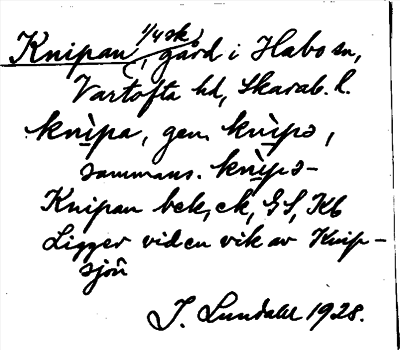 Knipan, 1/4 sk, gård i Habo sn,
Vartofta hd, Skarab. l.
knìpa, gen. knìpə,
sammans. knìpə-
Knipan bek, ek, GS, Kb
Ligger vid en vik av Knip-
sjön
I. Lundahl 1928.